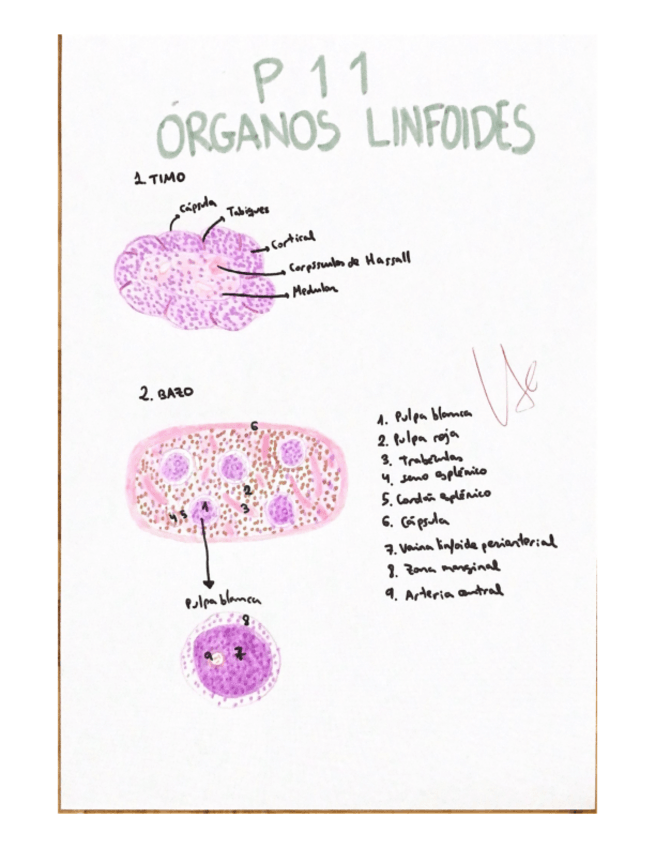 P 11
ÓRGANOS LINFOIDES
1. TIMO
Cápsula
Tabiques
Cortical
Corpúsculos de Hassall
Medular
2. BAZO
6
2
3
1
4 5
Pulpa blanca
8
9 7
1. Pulpa blanca
2. Pulpa roja
3. Trabéculas
4. seno esplénico
5. Cordón esplénico
6. Cápsula
7. Vaina linfoide periarterial
8. Zona marginal
9. Arteria central